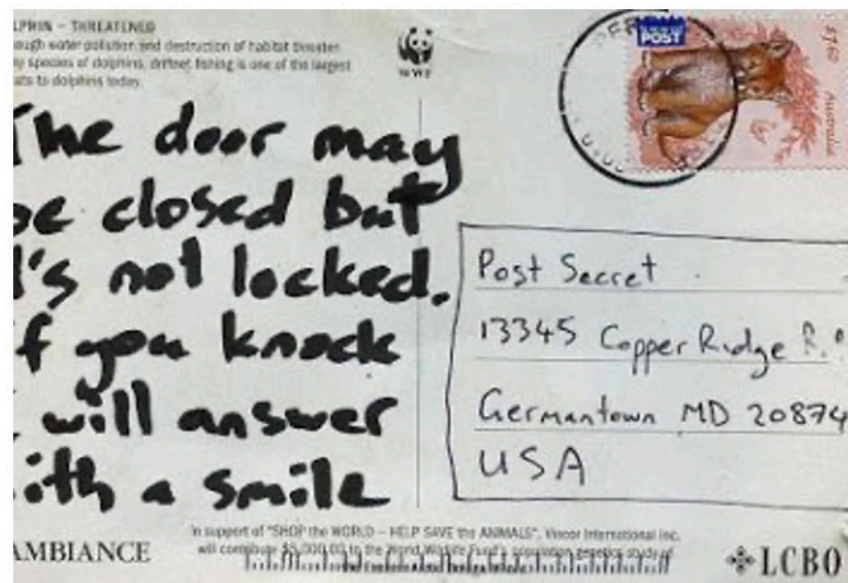 LPHIN – THREATENED
ough water pollution and destruction of habitat threaten
y species of dolphins, driftnet fishing is one of the largest
ats to dolphins today.
WWF
POST
$1.60
Australia
The door may
be closed but
t's not locked.
If you knock
I will answer
with a smile
Post Secret
13345 Copper Ridge
Germantown MD 20874
USA
In support of "SHOP the WORLD – HELP SAVE the ANIMALS", Vincor International Inc.
will contribute $5,000.00 to the World Wildlife Fund's population genetics study of
AMBIANCE
LCBO